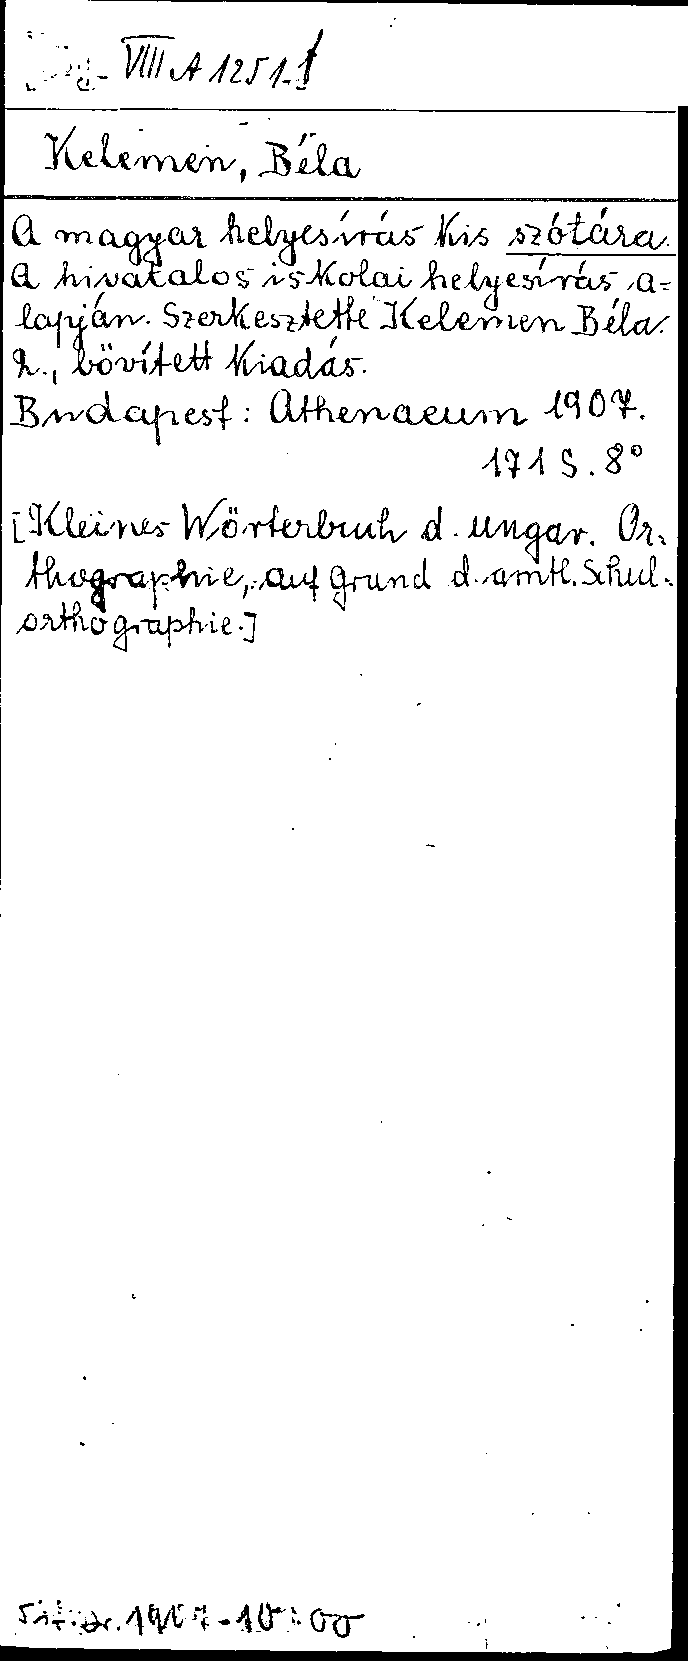 VIII A 1251-1
Kelemen, Béla
A magyar helyesírás kis szótára.
A hivatalos iskolai helyesírás a=
lapján. Szerkesztette Kelemen Béla.
2., bövített kiadás.
Budapest: Athenaeum 1907.
171 S. 8°
[Kleines Wörterbuch d. ungar. Or=
thographie, auf Grund d. amtl. Schul=
orthographie.]